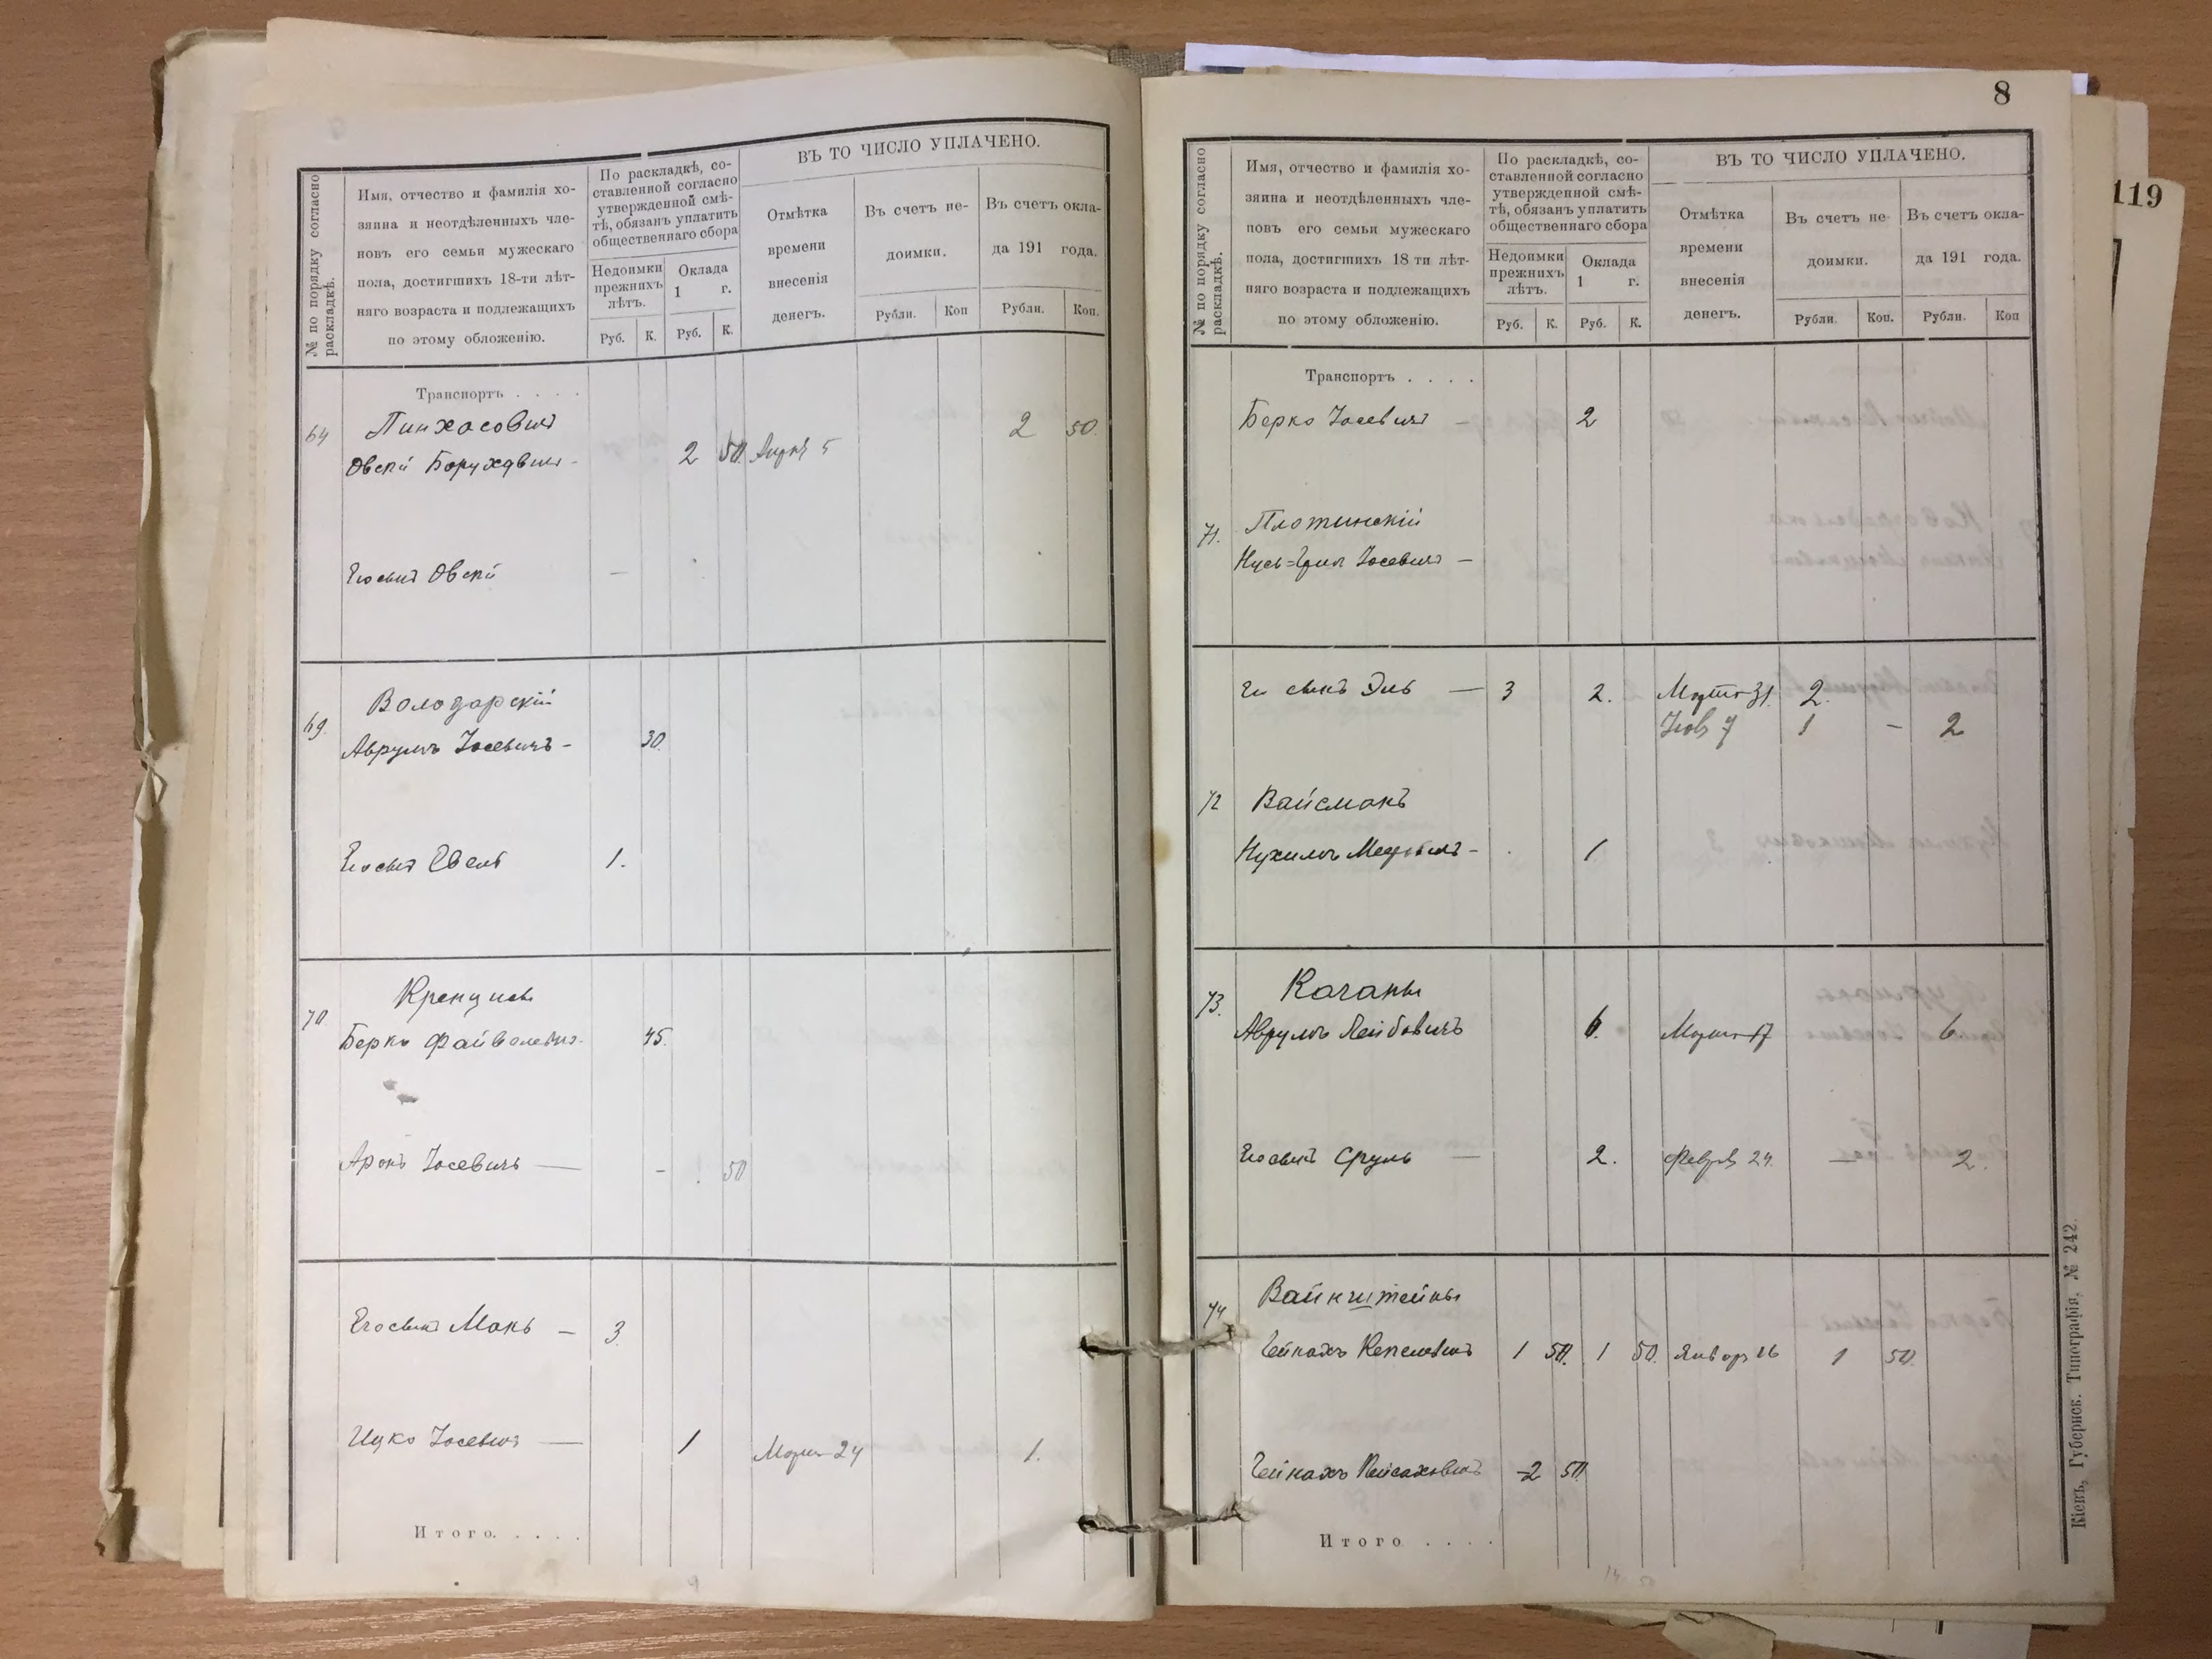 № по порядку согласно раскладкѣ.
Имя, отчество и фамилія хо-
зяина и неотдѣленныхъ чле-
новъ его семьи мужескаго
пола, достигшихъ 18-ти лѣт-
няго возраста и подлежащихъ
по этому обложенію.
По раскладкѣ, со-
ставленной согласно
утвержденной смѣ-
тѣ, обязанъ уплатить
общественнаго сбора
Недоимки
прежнихъ
лѣтъ.
Оклада
1 г.
Руб. К. Руб. К.
ВЪ ТО ЧИСЛО УПЛАЧЕНО.
Отмѣтка
времени
внесенія
денегъ.
Въ счетъ не-
доимки.
Въ счетъ окла-
да 191 года.
Рубли. Коп Рубли. Коп.
Транспортъ . . . .
64 Пинхасовичъ
2 50
Овсѣй Боруховичъ - 2 50. Апрѣл 5
Его сынъ Овсѣй —
69. Володарскій
Аврумъ Іосевичъ - 30.
Его сынъ 1.
70
Берко Файвелевичъ - 45.
Аронъ Іосевичъ — - 50
Его сынъ Манъ — 3.
Ицко Іосевичъ — 1 Март 24 1.
Итого. . . . .
8
№ по порядку согласно раскладкѣ.
Имя, отчество и фамилія хо-
зяина и неотдѣленныхъ чле-
новъ его семьи мужескаго
пола, достигшихъ 18 ти лѣт-
няго возраста и подлежащихъ
по этому обложенію.
По раскладкѣ, со-
ставленной согласно
утвержденной смѣ-
тѣ, обязанъ уплатить
общественнаго сбора
Недоимки
прежнихъ
лѣтъ.
Оклада
1 г.
Руб. К. Руб. К.
ВЪ ТО ЧИСЛО УПЛАЧЕНО.
Отмѣтка
времени
внесенія
денегъ.
Въ счетъ не-
доимки.
Въ счетъ окла-
да 191 года.
Рубли. Коп. Рубли. Коп
Транспортъ . . . .
Берко Іосевичъ — 2
71. Плотинскій
Іосевичъ —
Его сынъ Эль — 3 2. Март 31. 2.
7 1 — 2
72 Вайсманъ
Нухимъ - 1
73. Каганы
Аврумъ Лейбовичъ 6. Март 17 6
Его сынъ Сруль — 2. Февр 24. — 2.
74 Вайнштейны
1 50. 1 50. Январ 16 1 50.
2 50.
Итого . . . .
14 50
Кіевъ, Губернск. Типографія. № 242.
119